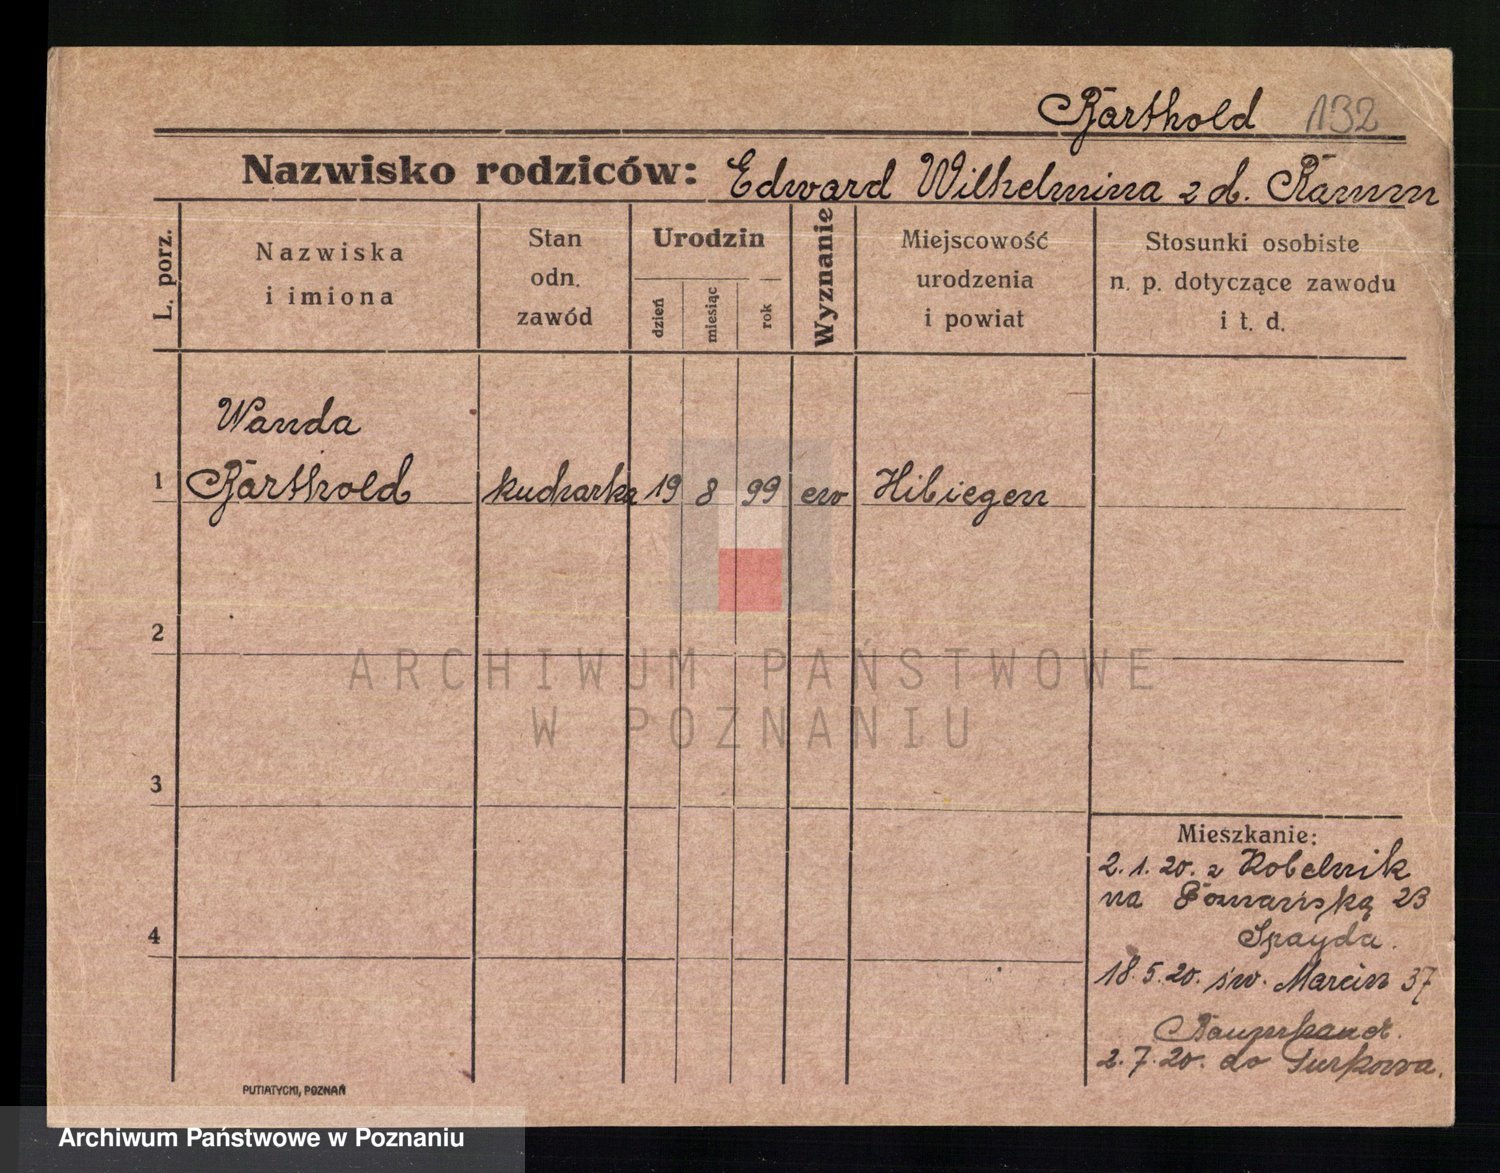 Barthold 132
Nazwisko rodziców: Edward Wilhelmina z d. Ramm
L. porz.
Nazwiska
i imiona
Stan
odn.
zawód
Urodzin
dzień
miesiąc
rok
Wyznanie
Miejscowość
urodzenia
i powiat
Stosunki osobiste
n. p. dotyczące zawodu
i t. d.
Wanda
1 Barthold kucharka 19 8 99 ew Hibiegen
2
ARCHIWUM PAŃSTWOWE
W POZNANIU
3
4
Mieszkanie:
2.1.20. z Kobelnik
na Poznańską 23
18.5.20. św. Marcin 37
2.7.20. do
PUTIATYCKI, POZNAŃ
Archiwum Państwowe w Poznaniu